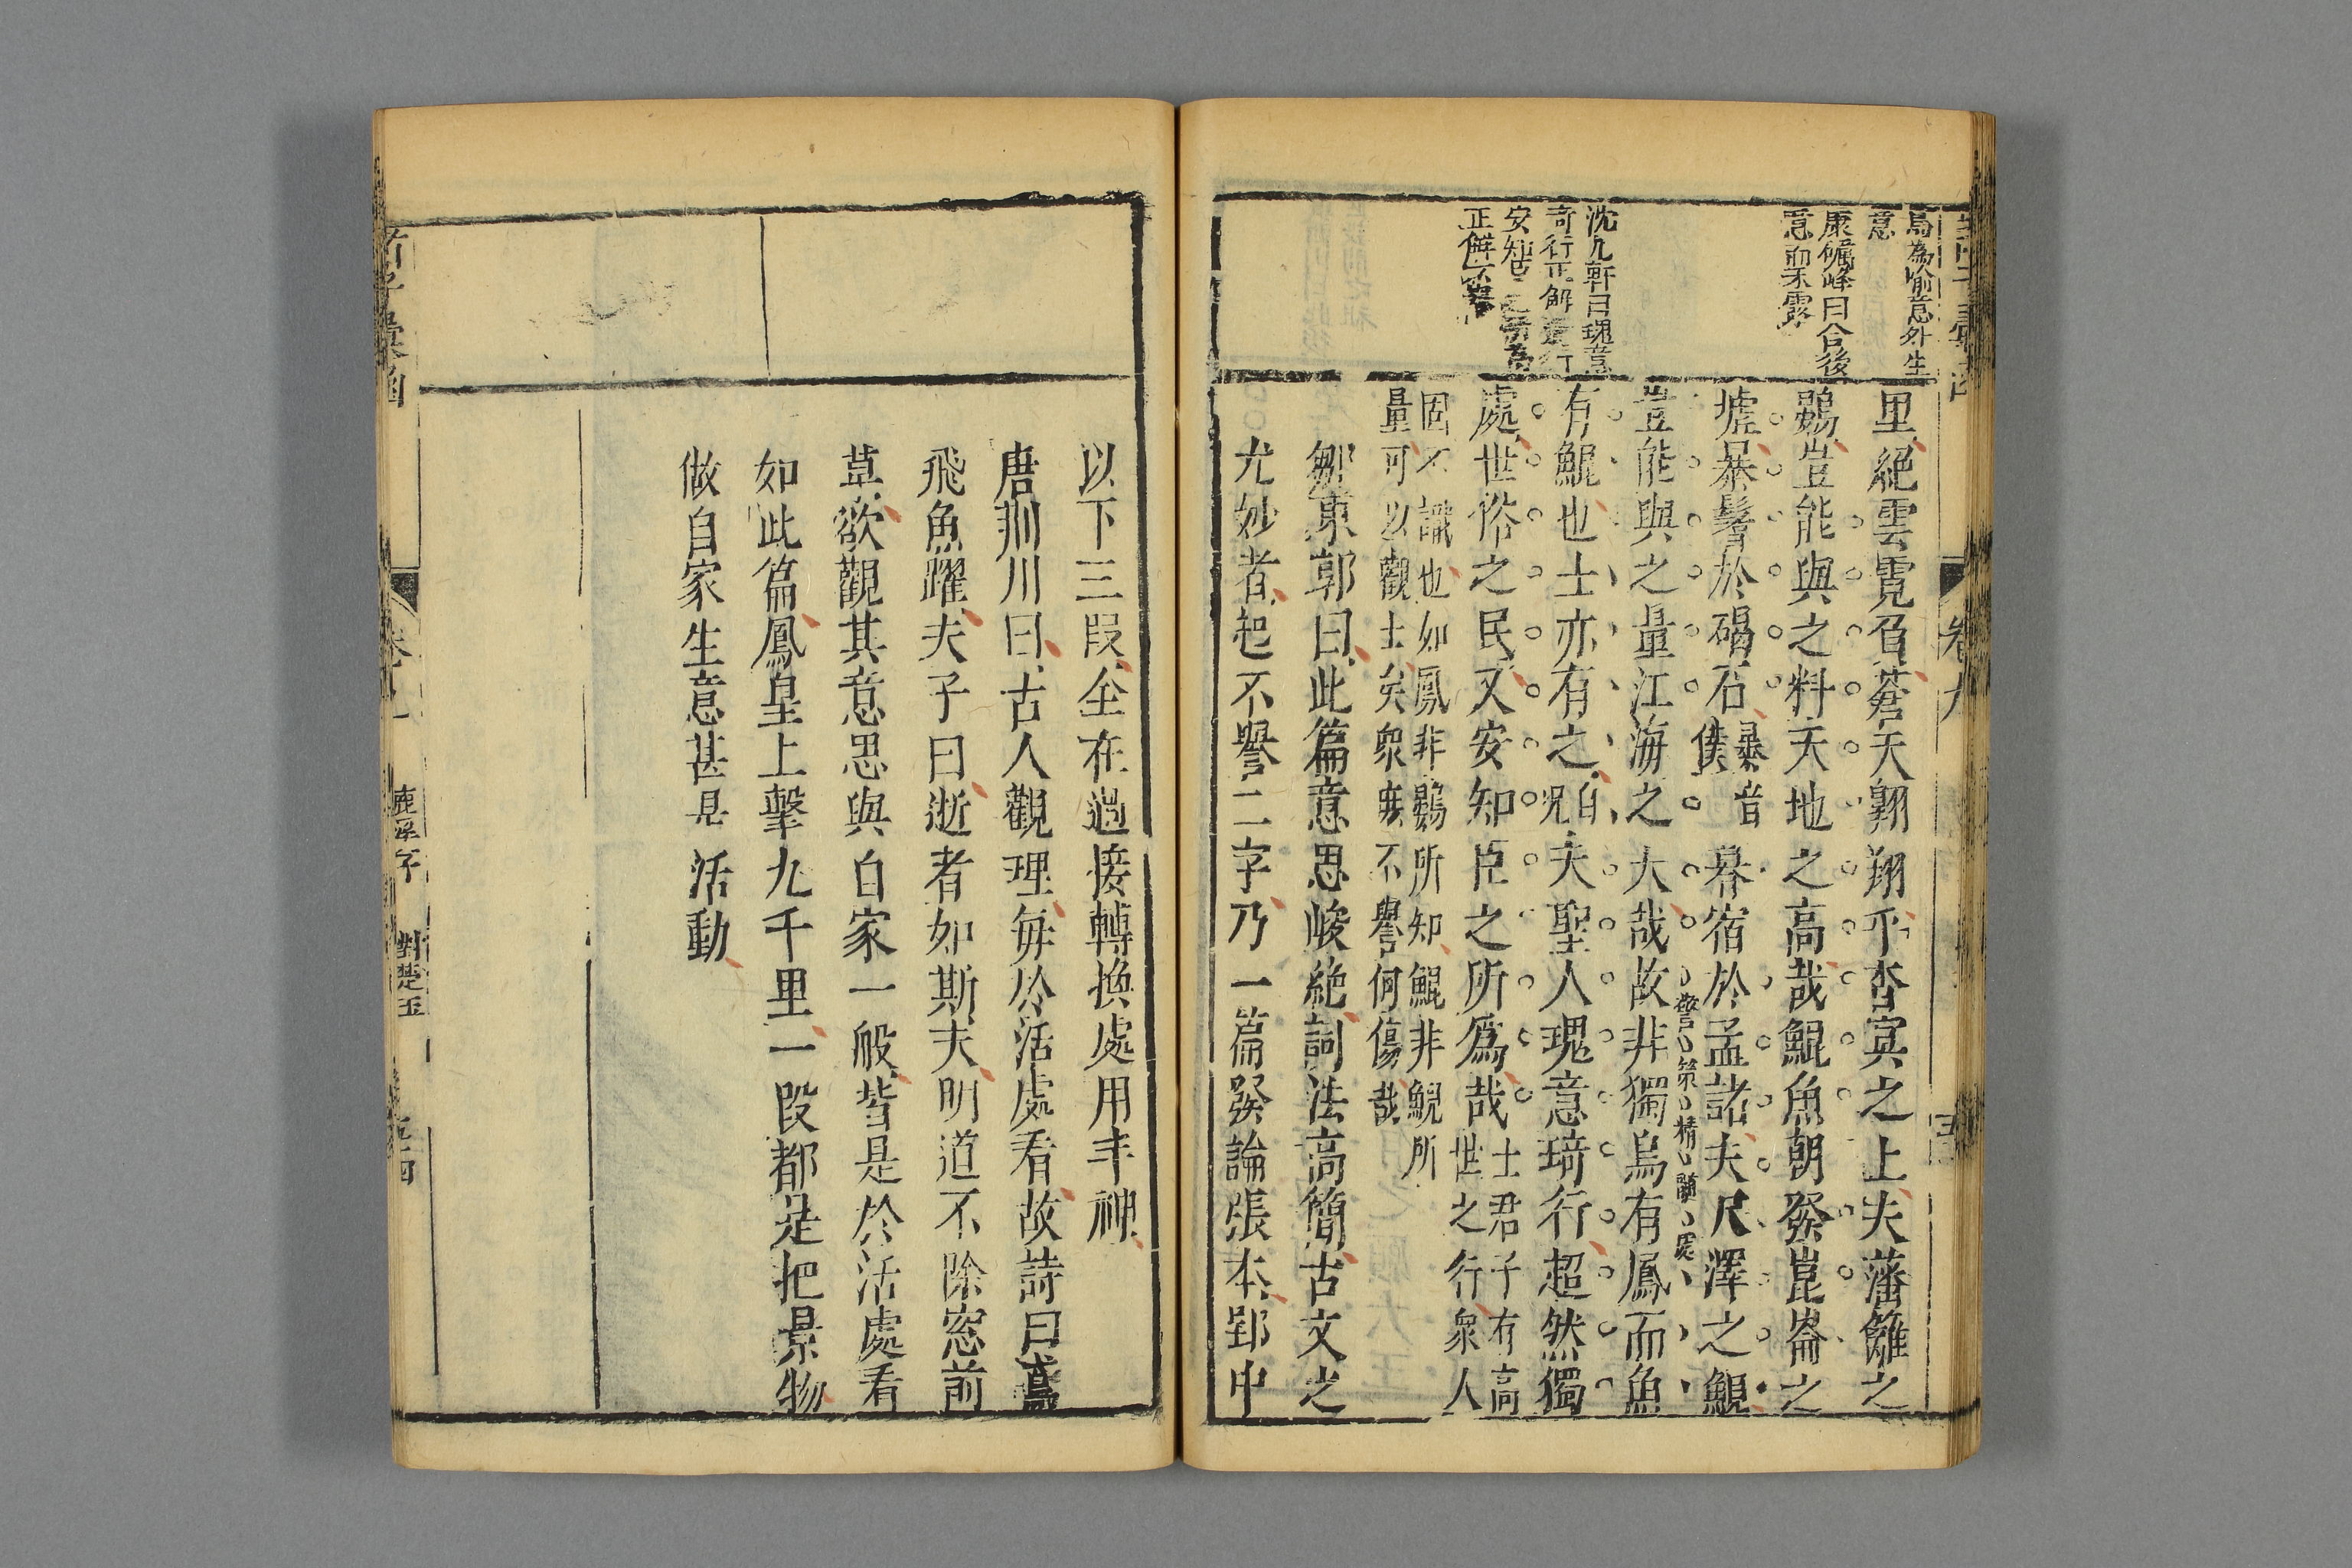 鳥為喻意外生
意
康礪峰曰合後
意而不露
沈九軒曰瑰意
奇行正解
安知
正
里絕雲霓負蒼天翺翔乎杳冥之上夫藩籬之
鷃豈能與之料天地之高哉鯤魚朝發崑崙之
墟暴鬐於碣石暴音
僕
暮宿於孟諸夫尺澤之鯢
豈能與之量江海之大哉故非獨鳥有鳳而魚
警策精顯處
有鯤也士亦有之自
況
夫聖人瑰意琦行超然獨
處世俗之民又安知臣之所爲哉士君子有高
世之行衆人
固不識也如鳳非鷃所知鯤非鯢所
量可以觀士矣衆婇不譽何傷哉
鄒東郭曰此篇意思峻絕詞法高簡古文之
尤妙者起不譽二字乃一篇發論張本郢中
以下三段全在過接轉換處用丰神
唐荊川曰古人觀理每於活處看故詩曰鳶
飛魚躍夫子曰逝者如斯夫明道不除窓前
草欲觀其意思與自家一般皆是於活處看
如此篇鳳皇上擊九千里一段都是把景物
做自家生意甚是活動
鹿溪子
對楚王
五四